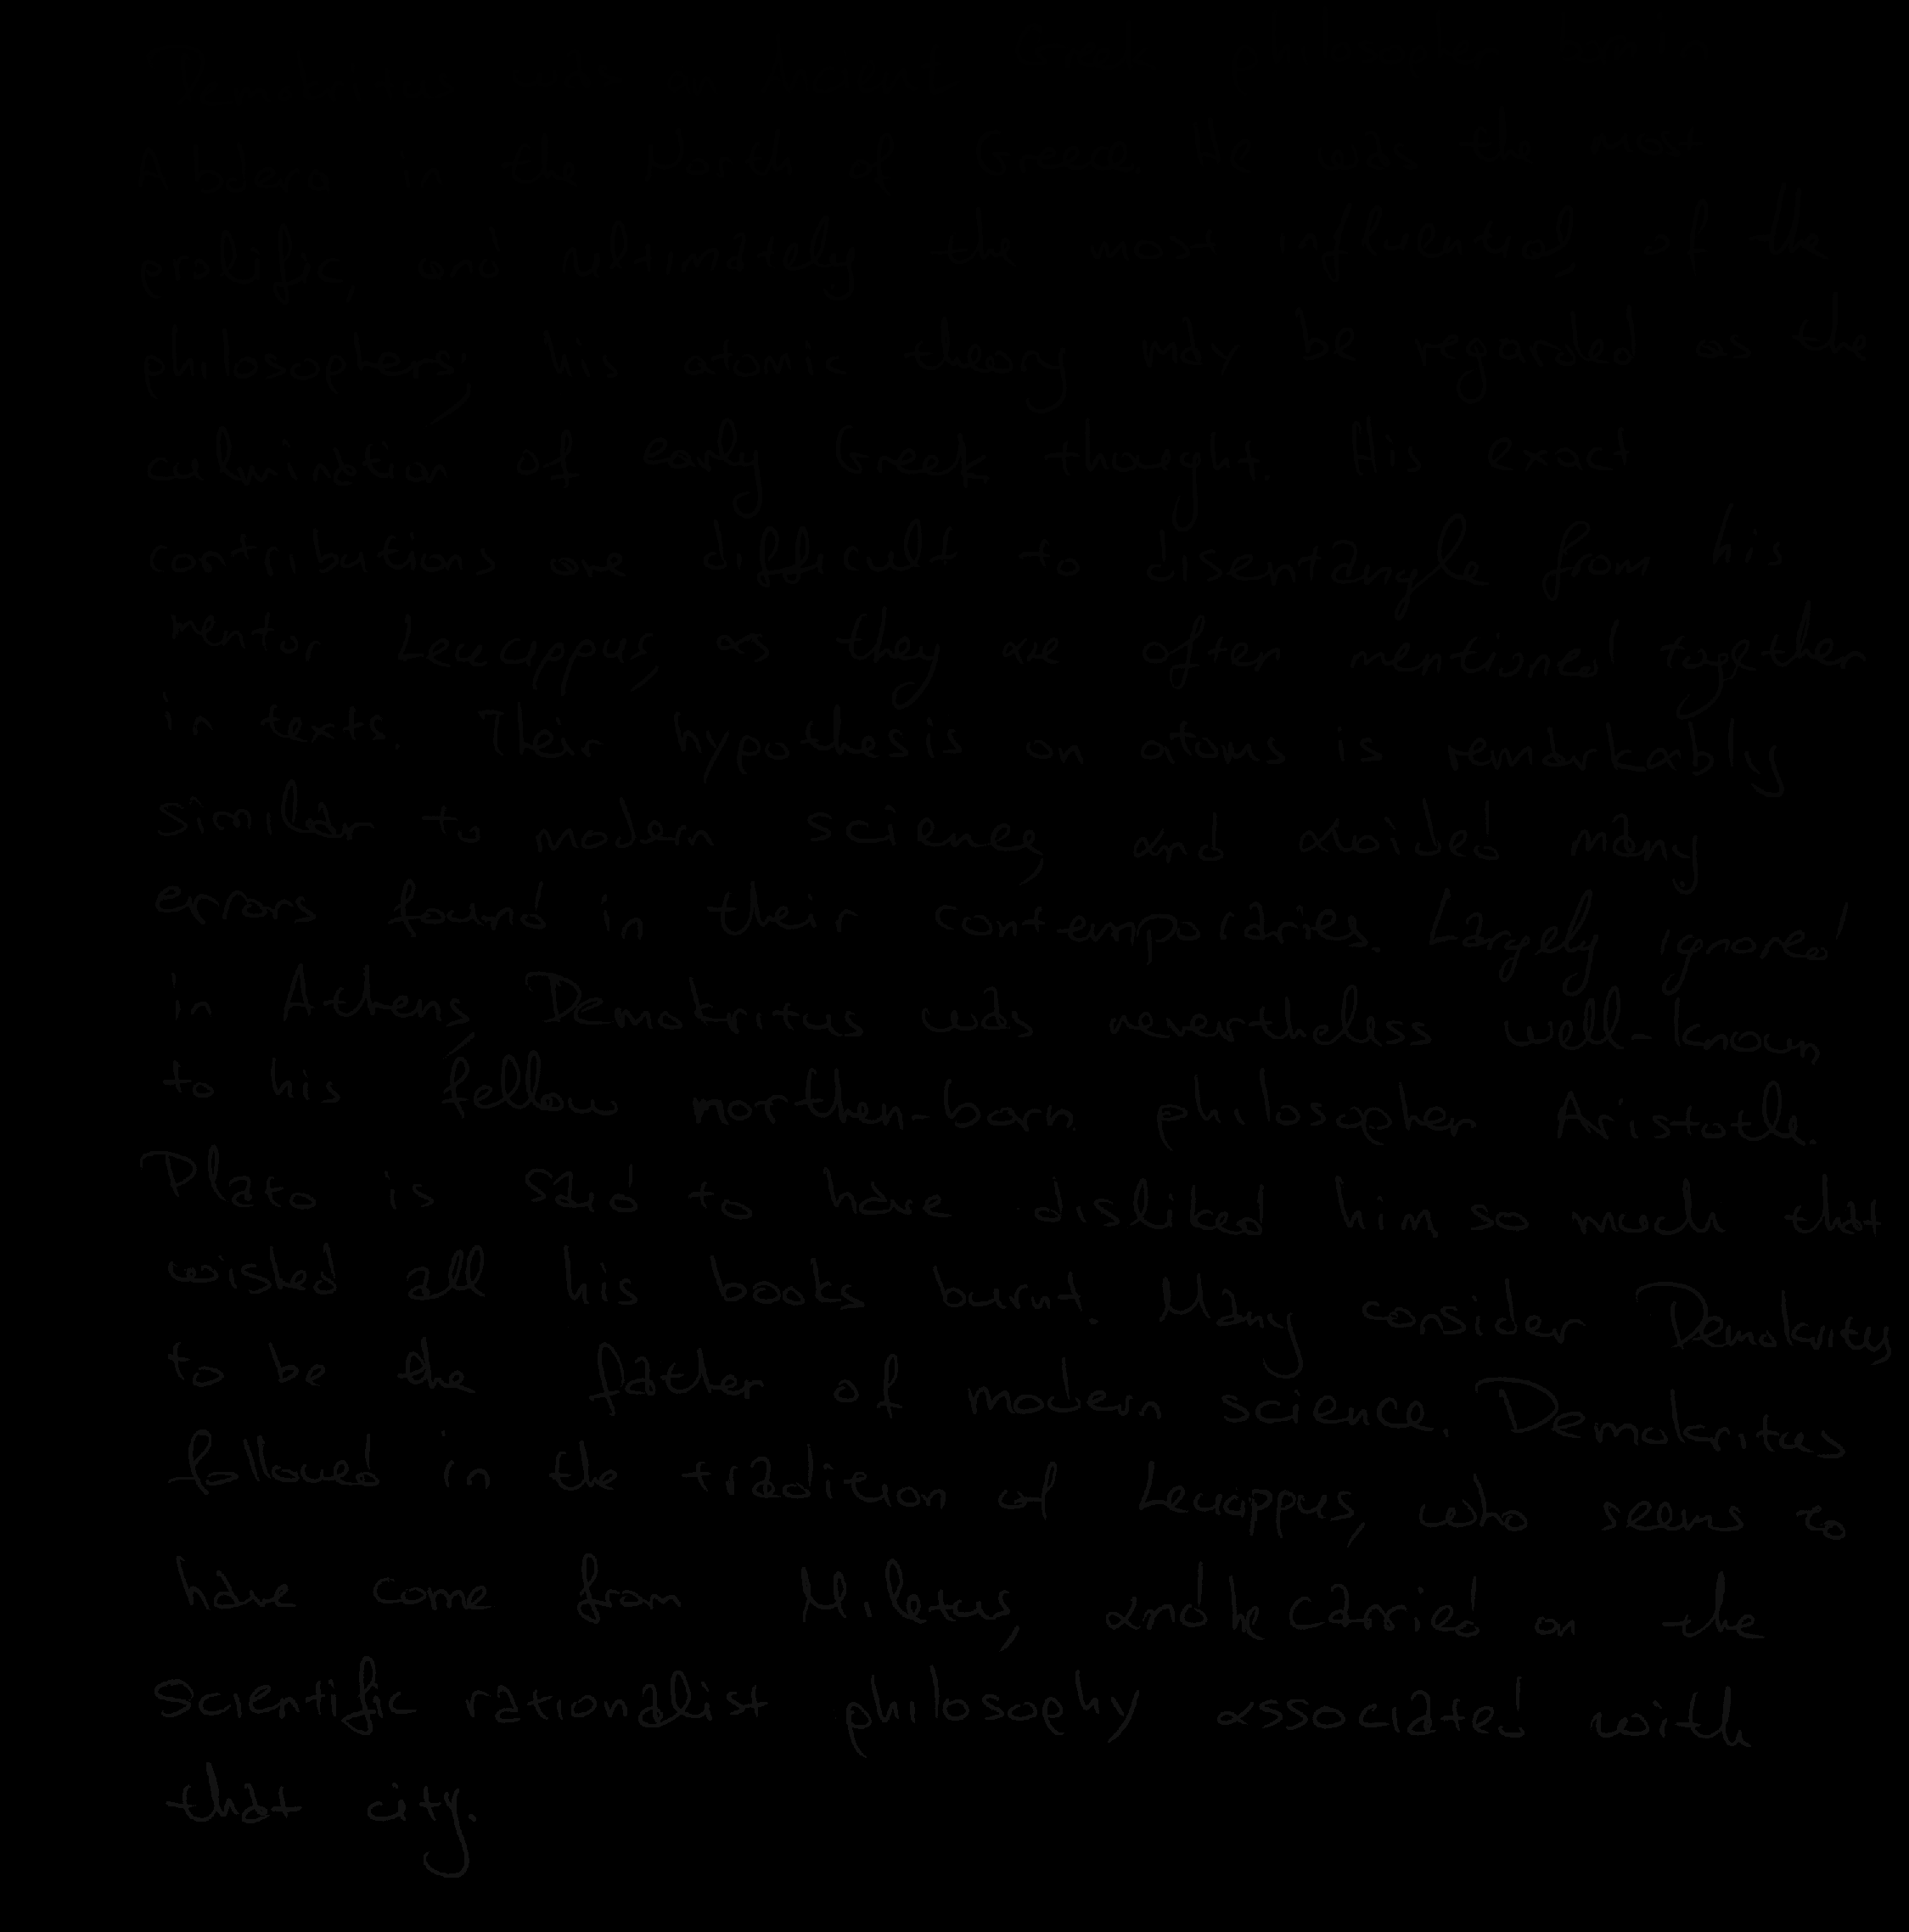 Abdera in the North of Greece. He was the most
prolific, and ultimately the most influential, of the
philosophers; his atomic theory may be regarded as the
culmination of early Greek thought. His exact
contributions are difficult to disentangle from his
mentor Leucippus, as they are often mentioned together
in texts. Their hypothesis on atoms is remarkably
similar to modern science, and avoided many
errors found in their contemporaries. Largely ignored
in Athens, Demokritus was nevertheless well-known
to his fellow northen-born philosopher Aristotle.
Plato is said to have disliked him so much that
wished all his books burnt. Many consider Demokritus
to be the father of modern science. Demokritus
followed in the tradition of Leucippus, who seems to
have come from Miletus, and he carried on the
scientific rationalist philosophy associated with
that city.